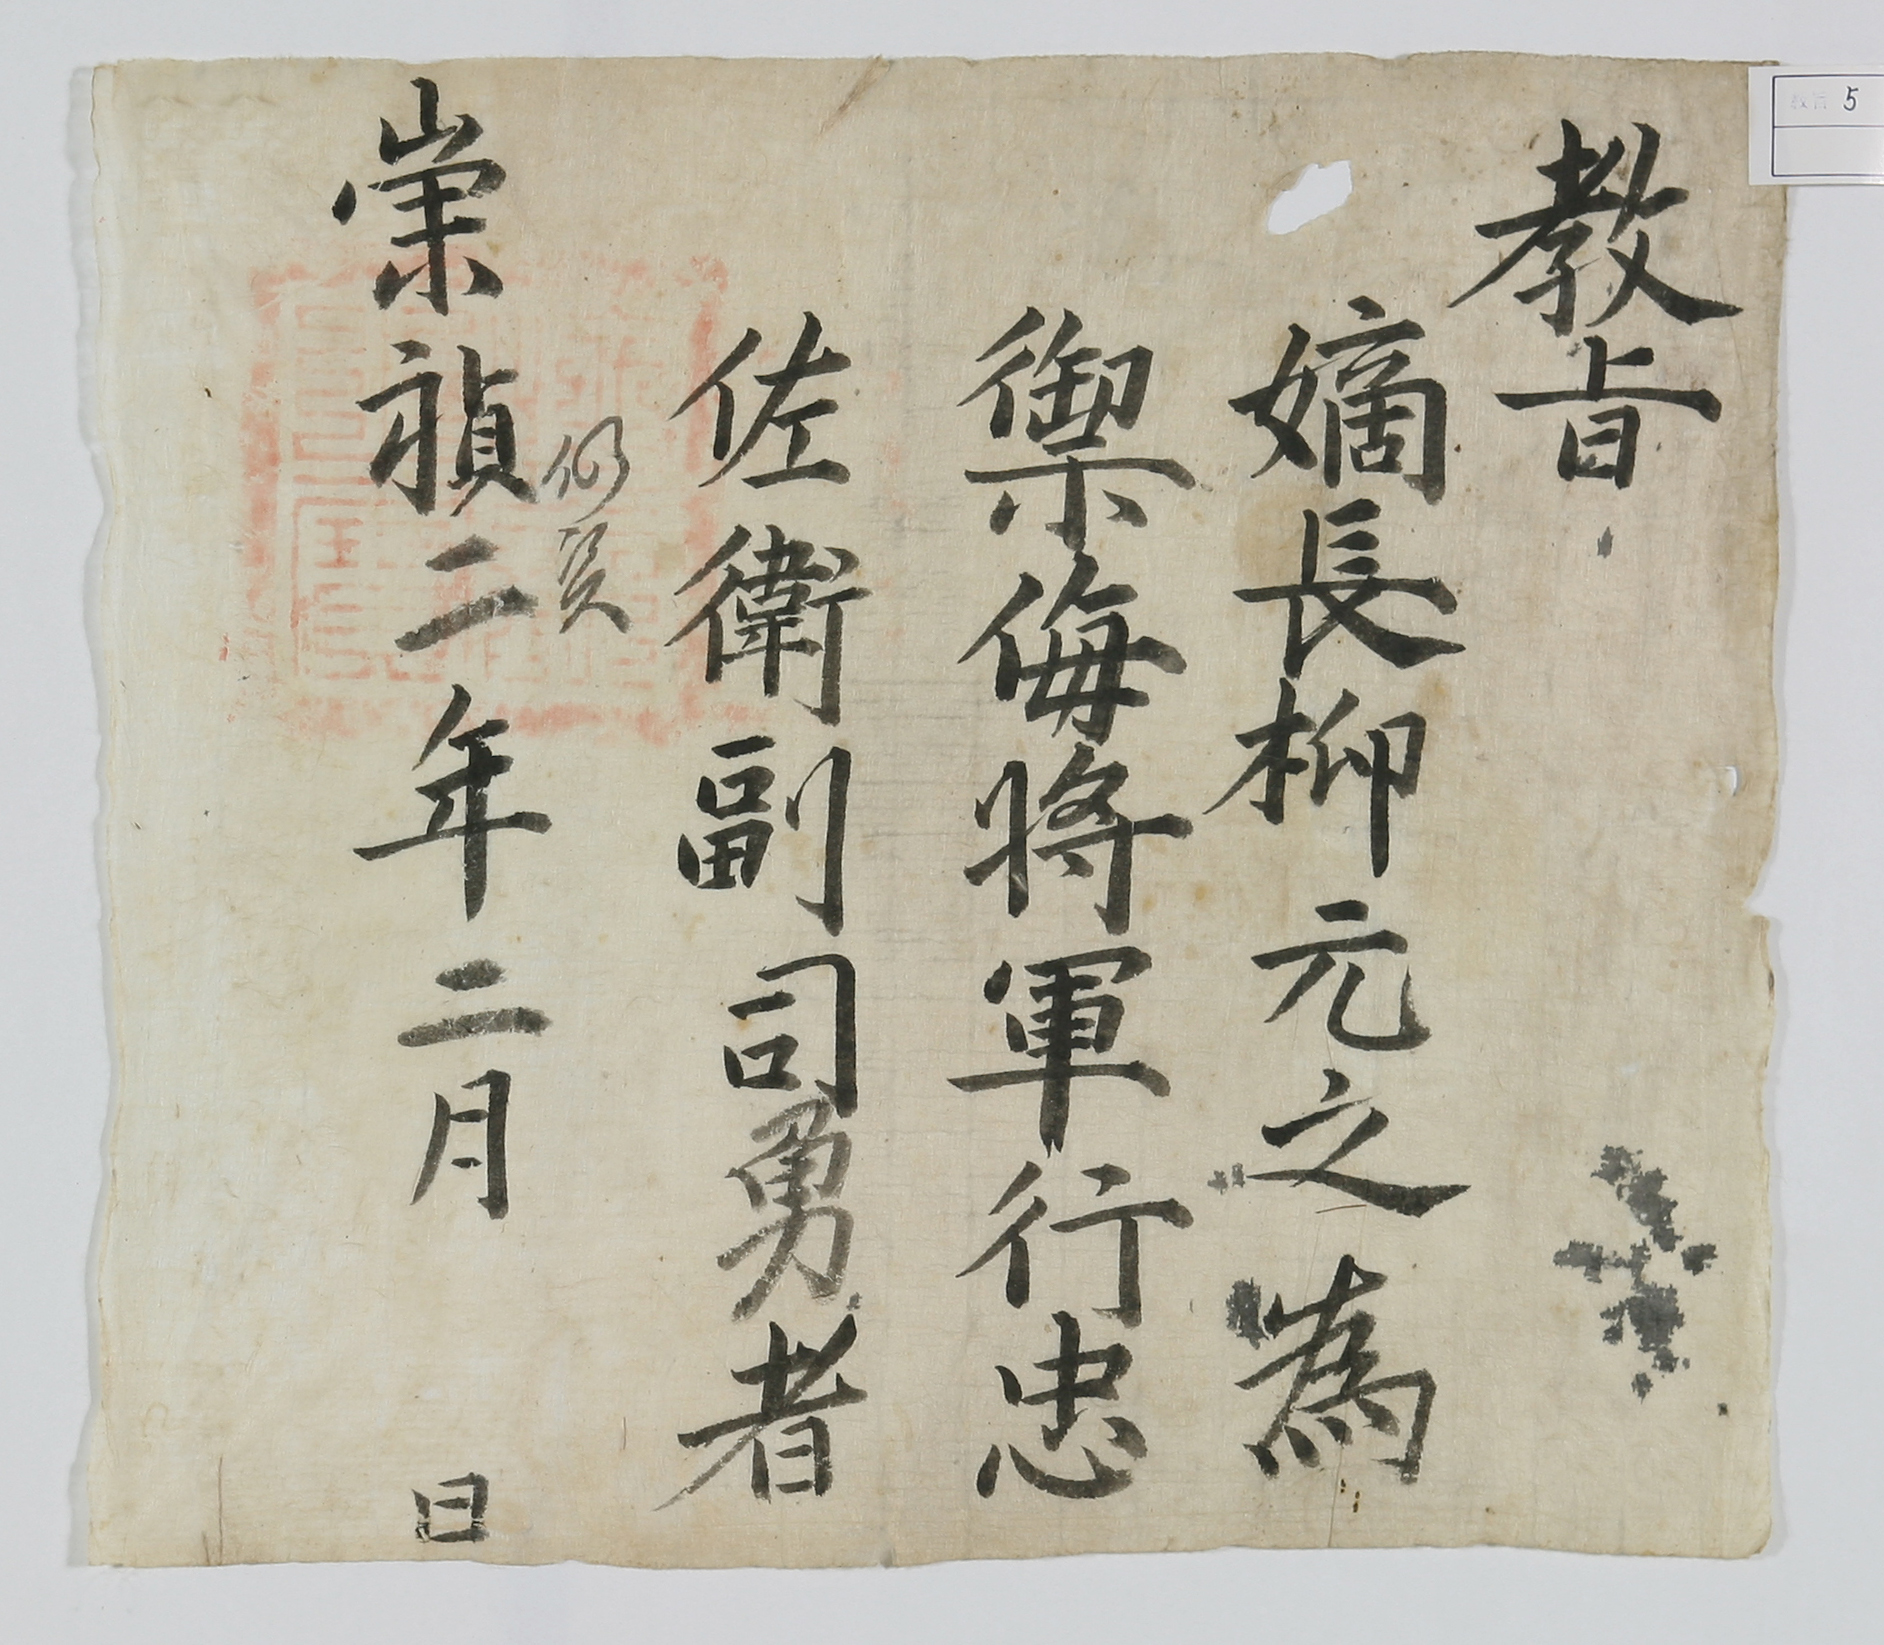 教旨
嫡長柳元之爲
禦侮將軍行忠
佐衛副司勇者
崇禎二年二月 日
仍資
5